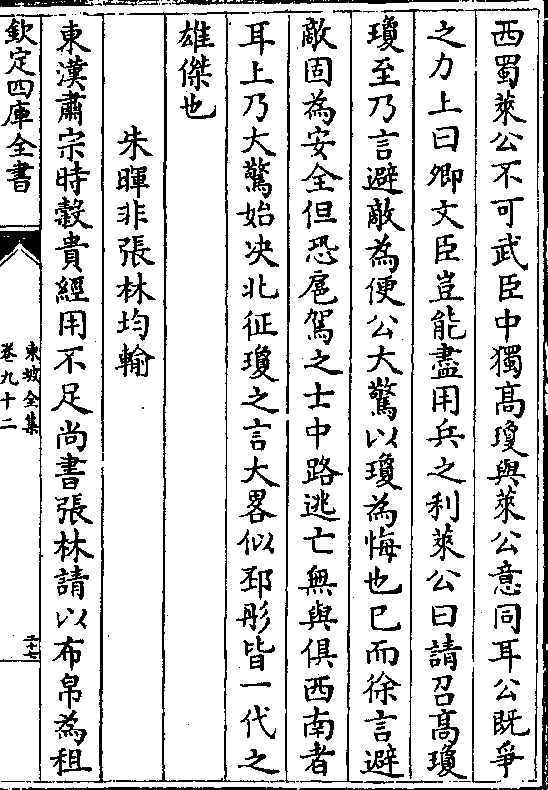 西蜀萊公不可武臣中獨髙瓊與萊公意同耳公既爭
之力上曰卿文臣豈能盡用兵之利萊公曰請召髙瓊
瓊至乃言避敵為便公大驚以瓊為悔也已而徐言避
敵固為安全但恐扈駕之士中路逃亡無與俱西南者
耳上乃大驚始决北征瓊之言大畧似邳彤皆一代之
雄傑也
朱暉非張林均輸
東漢肅宗時穀貴經用不足尚書張林請以布帛為租
欽定四庫全書
東坡全集
卷九十二
三十七